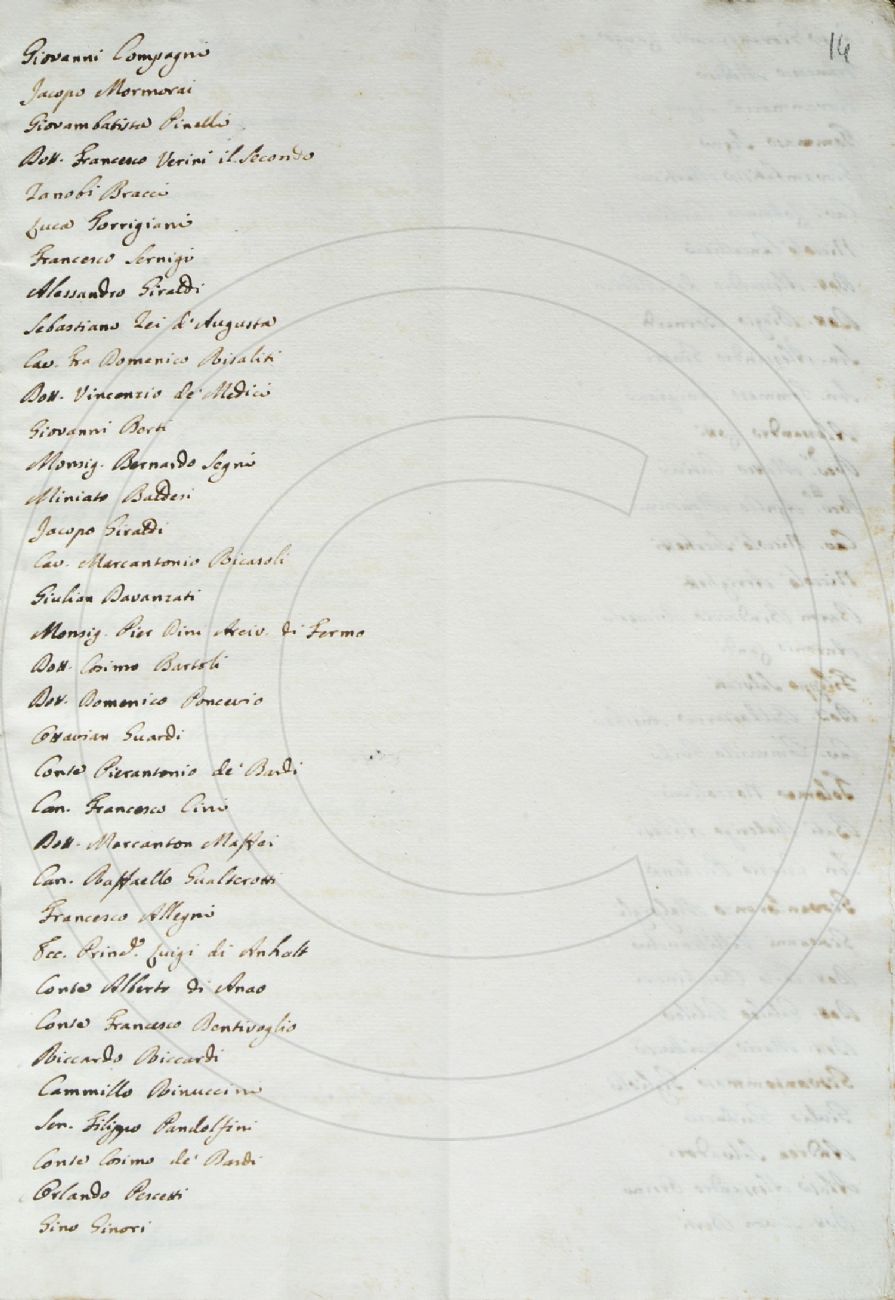 14
Giovanni Compagni
Jacopo Mormorai
Giovambatista Pinelli
Dott. Francesco Verini il Secondo
Zanobi Bracci
Luca Torrigiani
Francesco Sernigi
Alessandro Giraldi
Sebastiano Zei d'Augusta
Cav. Fra Domenico Risaliti
Dott. Vincenzio de' Medici
Giovanni Berti
Monsig. Bernardo Segni
Miniato Baldesi
Jacopo Giraldi
Cav. Marcantonio Ricasoli
Giulian Davanzati
Monsig. Pier Dini Arciv. di Fermo
Dott. Cosimo Bartoli
Dott. Domenico Poncevio
Ottavian Guardi
Conte Pierantonio de' Bardi
Can. Francesco Cini
Dott. Marcanton Maffei
Can. Raffaello Gualterotti
Francesco Allegri
Ecc. Princ. Luigi di Anhalt
Conte Alberto di Anao
Conte Francesco Bentivoglio
Riccardo Riccardi
Cammillo Rinuccini
Sen. Filippo Pandolfini
Conte Cosimo de' Bardi
Orlando Pescetti
Gino Ginori